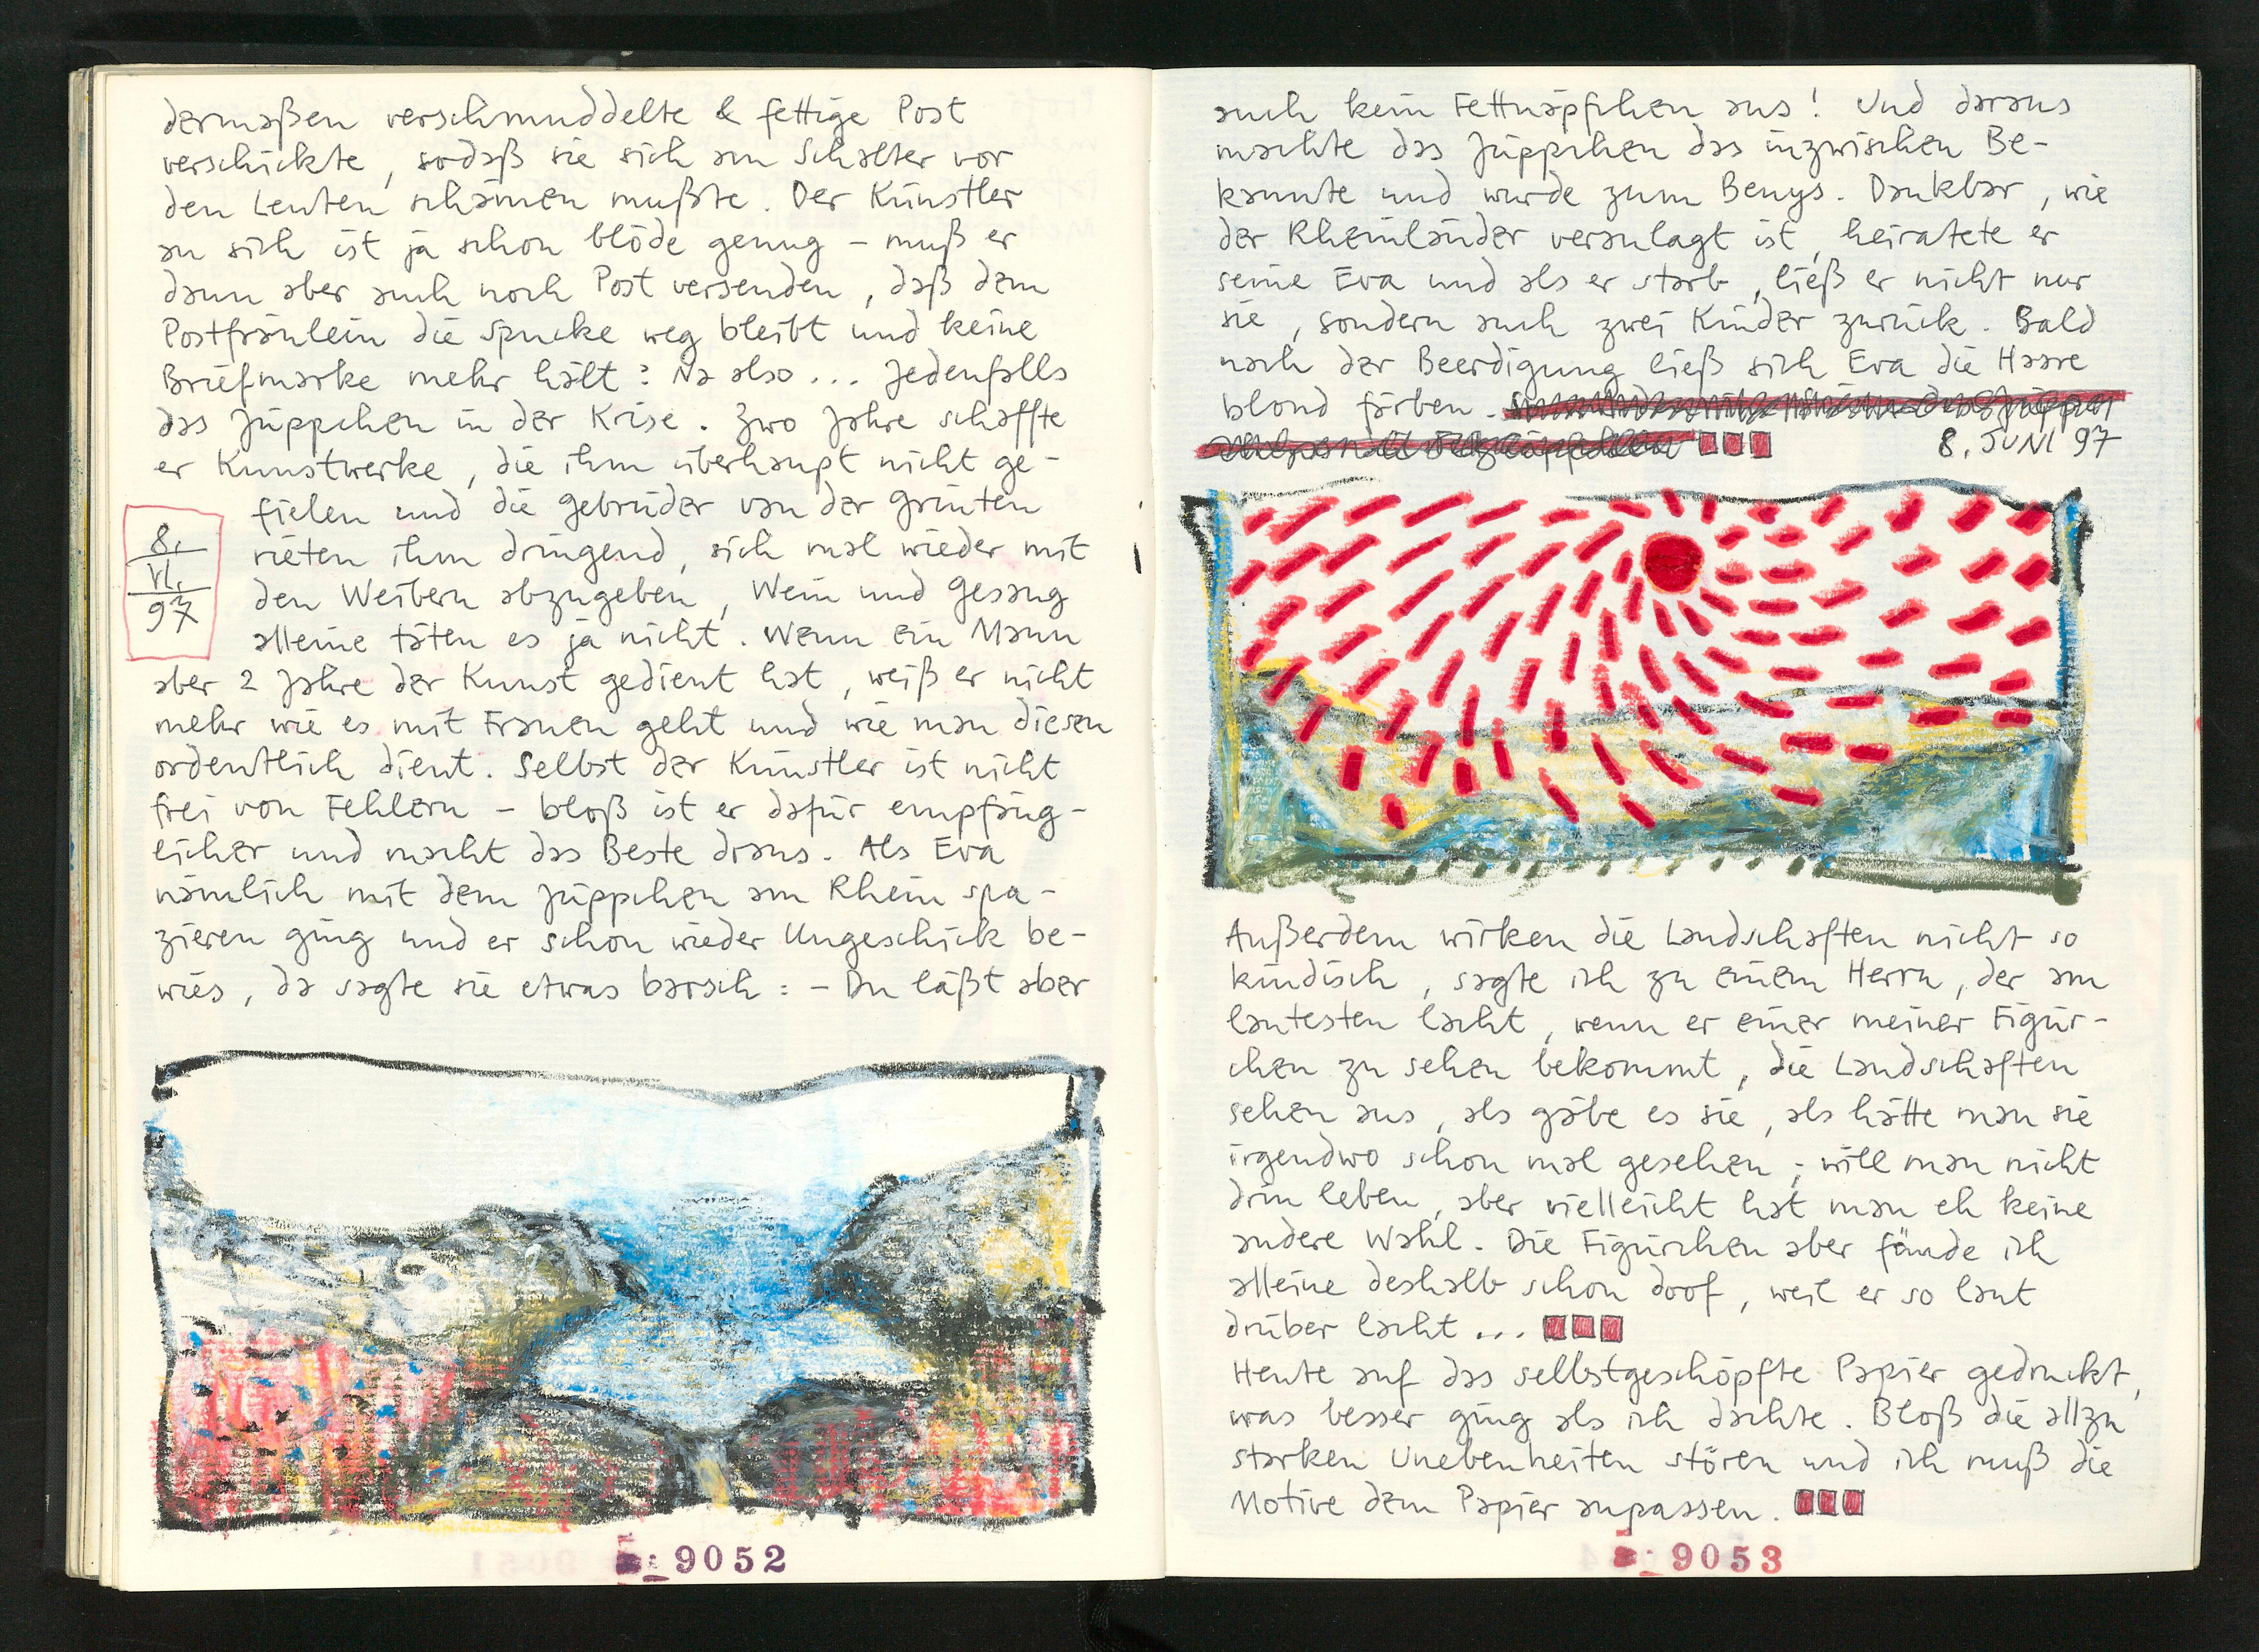 dermaßen verschmuddelte & fettige Post
verschickte, sodaß sie sich am Schalter vor
den Leuten schämen mußte. Der Künstler
an sich ist ja schon blöde genug – muß er
dann aber auch noch Post versenden, daß dem
Postfräulein die Spucke weg bleibt und keine
Briefmarke mehr hält? Na also... Jedenfalls
das Jüppchen in der Krise. Zwo Jahre schaffte
er Kunstwerke, die ihm überhaupt nicht ge-
fielen und die Gebrüder van der Grinten
rieten ihm dringend, sich mal wieder mit
den Weibern abzugeben, Wein und Gesang
alleine täten es ja nicht. Wenn ein Mann
aber 2 Jahre der Kunst gedient hat, weiß er nicht
mehr wie es mit Frauen geht und wie man diesen
ordentlich dient. Selbst der Künstler ist nicht
frei von Fehlern – bloß ist er dafür empfäng-
licher und macht das Beste draus. Als Eva
nämlich mit dem Jüppchen am Rhein spa-
zieren ging und er schon wieder Ungeschick be-
wies, da sagte sie etwas barsch: – Du läßt aber
8.
VI.
97
9052
auch kein Fettnäpfchen aus! Und daraus
machte das Jüppchen das inzwischen Be-
kannte und wurde zum Beuys. Dankbar, wie
der Rheinländer veranlagt ist, heiratete er
seine Eva und als er starb, ließ er nicht nur
sie, sondern auch zwei Kinder zurück. Bald
nach der Beerdigung ließ sich Eva die Haare
blond färben.
8. JUNI 97
Außerdem wirken die Landschaften nicht so
kindisch, sagte ich zu einem Herrn, der am
lautesten lacht, wenn er einer meiner Figür-
chen zu sehen bekommt, die Landschaften
sehen aus, als gäbe es sie, als hätte man sie
irgendwo schon mal gesehen; will man nicht
drin leben, aber vielleicht hat man eh keine
andere Wahl. Die Figürchen aber fände ich
alleine deshalb schon doof, weil er so laut
drüber lacht...
Heute auf das selbstgeschöpfte Papier gedruckt,
was besser ging als ich dachte. Bloß die allzu
starken Unebenheiten stören und ich muß die
Motive dem Papier anpassen.
9053